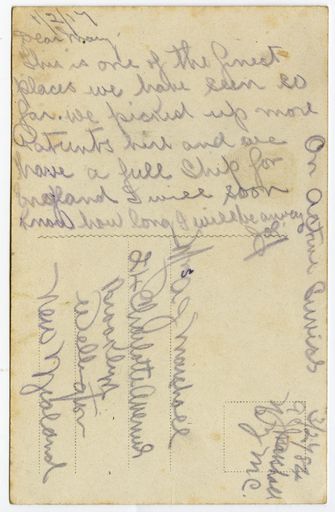 1/2/17
Dear Mary
This is one of the finest
places we have seen so
far. we picked up more
Patients here and we
have a full Ship for
England I will soon
know how long I will be away
On Active Service
Mrs A E Marshall
24 Charlotte Avenue
Brooklyn
Wellington
New Zealand
Marshall
N Z M C.